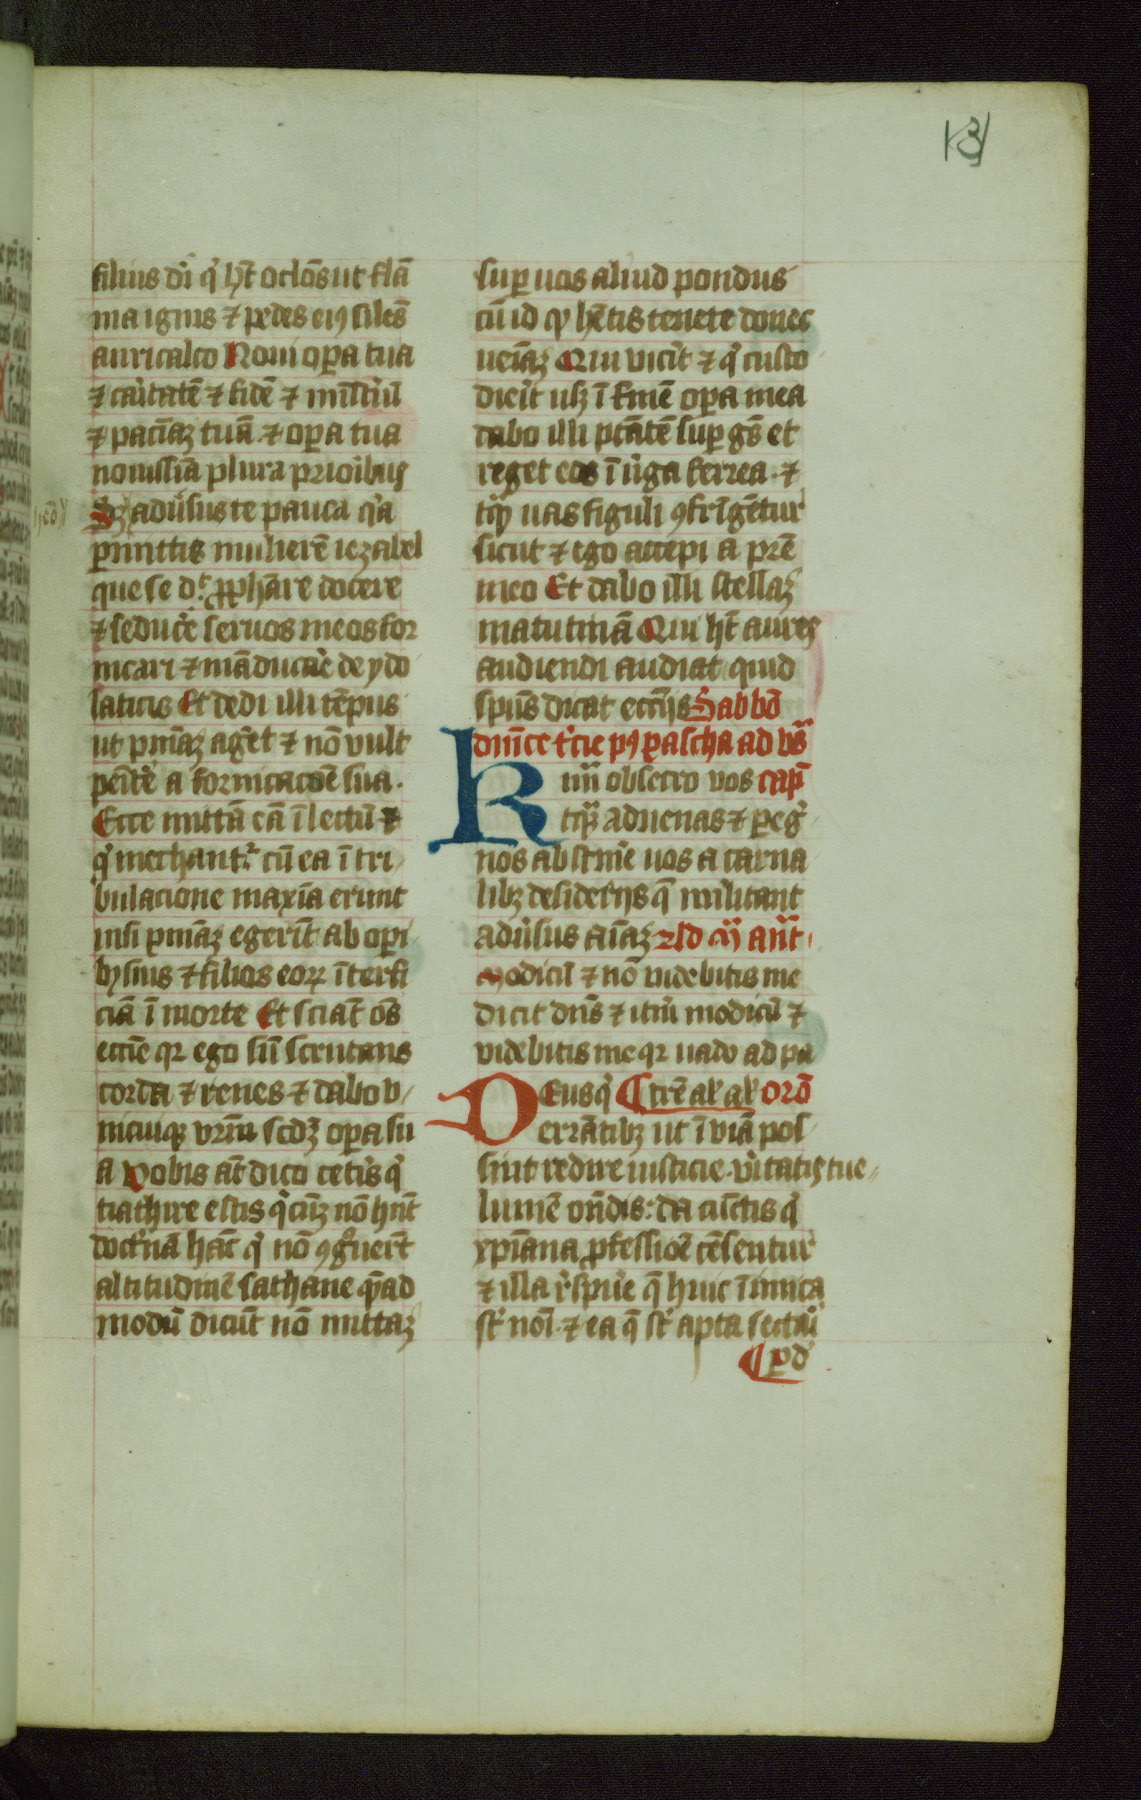 131
filius dī q̇ hꝫt oclōs ut flā
ma ignis ⁊ pedes eiꝰ siles̄
auricalco Noui oꝑa tua
⁊ caritatē ⁊ fidē ⁊ minist̄iū
⁊ paciāꝫ tuā ⁊ oꝑa tua
nouissīa plura prioribus
Sꝫ aduersus te pauca q̇a
ꝑmittis mulierē iezabel
que se d͛ ꝓphāre docere
⁊ seduce͛ seruos meos for
nicari ⁊ māducar̄e de ydo
laticis Et dedi illi tēpus
ut pn̄iāꝫ aget̄ ⁊ nō vult
penite͛ a fornicacōe sua.
Ecce mittā eā ī lectū ⁊
q̇ mechant᷑ cū ea ī tri
bulacione maxīa erunt
nisi pn̄iāꝫ egerīt ab oꝑi
bꝰ suis ⁊ filios eoꝝ īterfi
ciā ī morte Et sciāt oēs
eccīe qꝛ ego sū scrutans
corda ⁊ renes ⁊ dabo v
nicuiqꝫ vr̄m scdꝫ oꝑa su
a Vobis aūt dico cetis͛ q̇
tiathire estis q̇cūqꝫ nō hn̄t
doct͛nā hāc q̇ nō ꝯgͦuer̄t
altitudinē sathane qꝫad
modū dicūt nō mittaꝫ
suꝑ uos aliud pondus
cū id qͩ hētis tenete donec
ueīaꝫ Qui vicīt ⁊ q̇ custo
dieīt usqꝫ ī finē oꝑa mea
dabo illi ptātē suꝑ gēs et
reget eos ī uͥga ferrea ⁊
tāqꝫ uas figuli ꝯfrīgētur
sicut ⁊ ego accepi a prē
meo Et dabo illi stellaꝫ
matutinā Qui hꝫt aures
audiendi audiat quid
spūs dicat eccīijs Sabbō
dn̄ice t͛cie pꝰ pascha ad vs̄
Kmī obsecro vos cap̄
tāqꝫ aduenas ⁊ peg͛
nos abstine͛ uos a carna
libꝫ desiderijs q̄ militant
adūsus aīaꝫ Ad m̄ ant̄
Modicū ⁊ nō videbitis me
dicit dn̄s ⁊ itū modicū ⁊
videbitis me qꝛ uado ad pa
Deus q̇ ¶ trē al͛ al͛ orō
errātibꝫ ut ī viā pos
sint redire iusticie v͛itatis tue
lumē ondis: da cūctis q̇
xp̄iana ꝓfessiōe cēsentur
⁊ illa r͛spue͛ q̄ huic īimica
st͛ noī ⁊ ea q̄ st͛ apta sectari
¶ ꝑ d͛